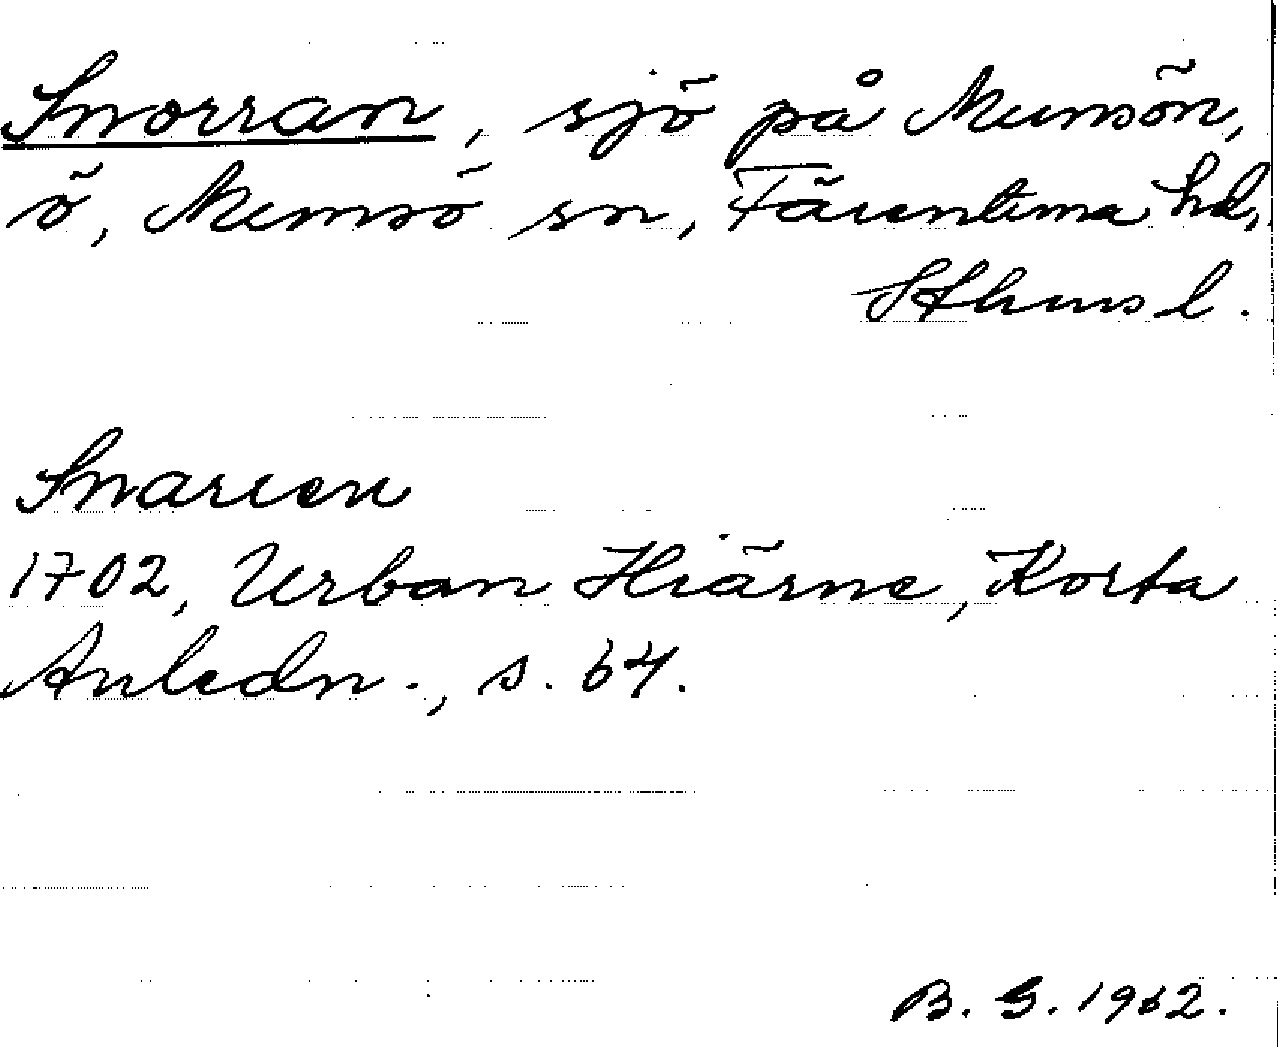 Snorran, sjö på Munsön,
ö, Munsö sn, Färentuna hd,
Sthms l.
Snarren
1702, Urban Hiärne, Korta
Anledn., s. 64.
B. G. 1962.